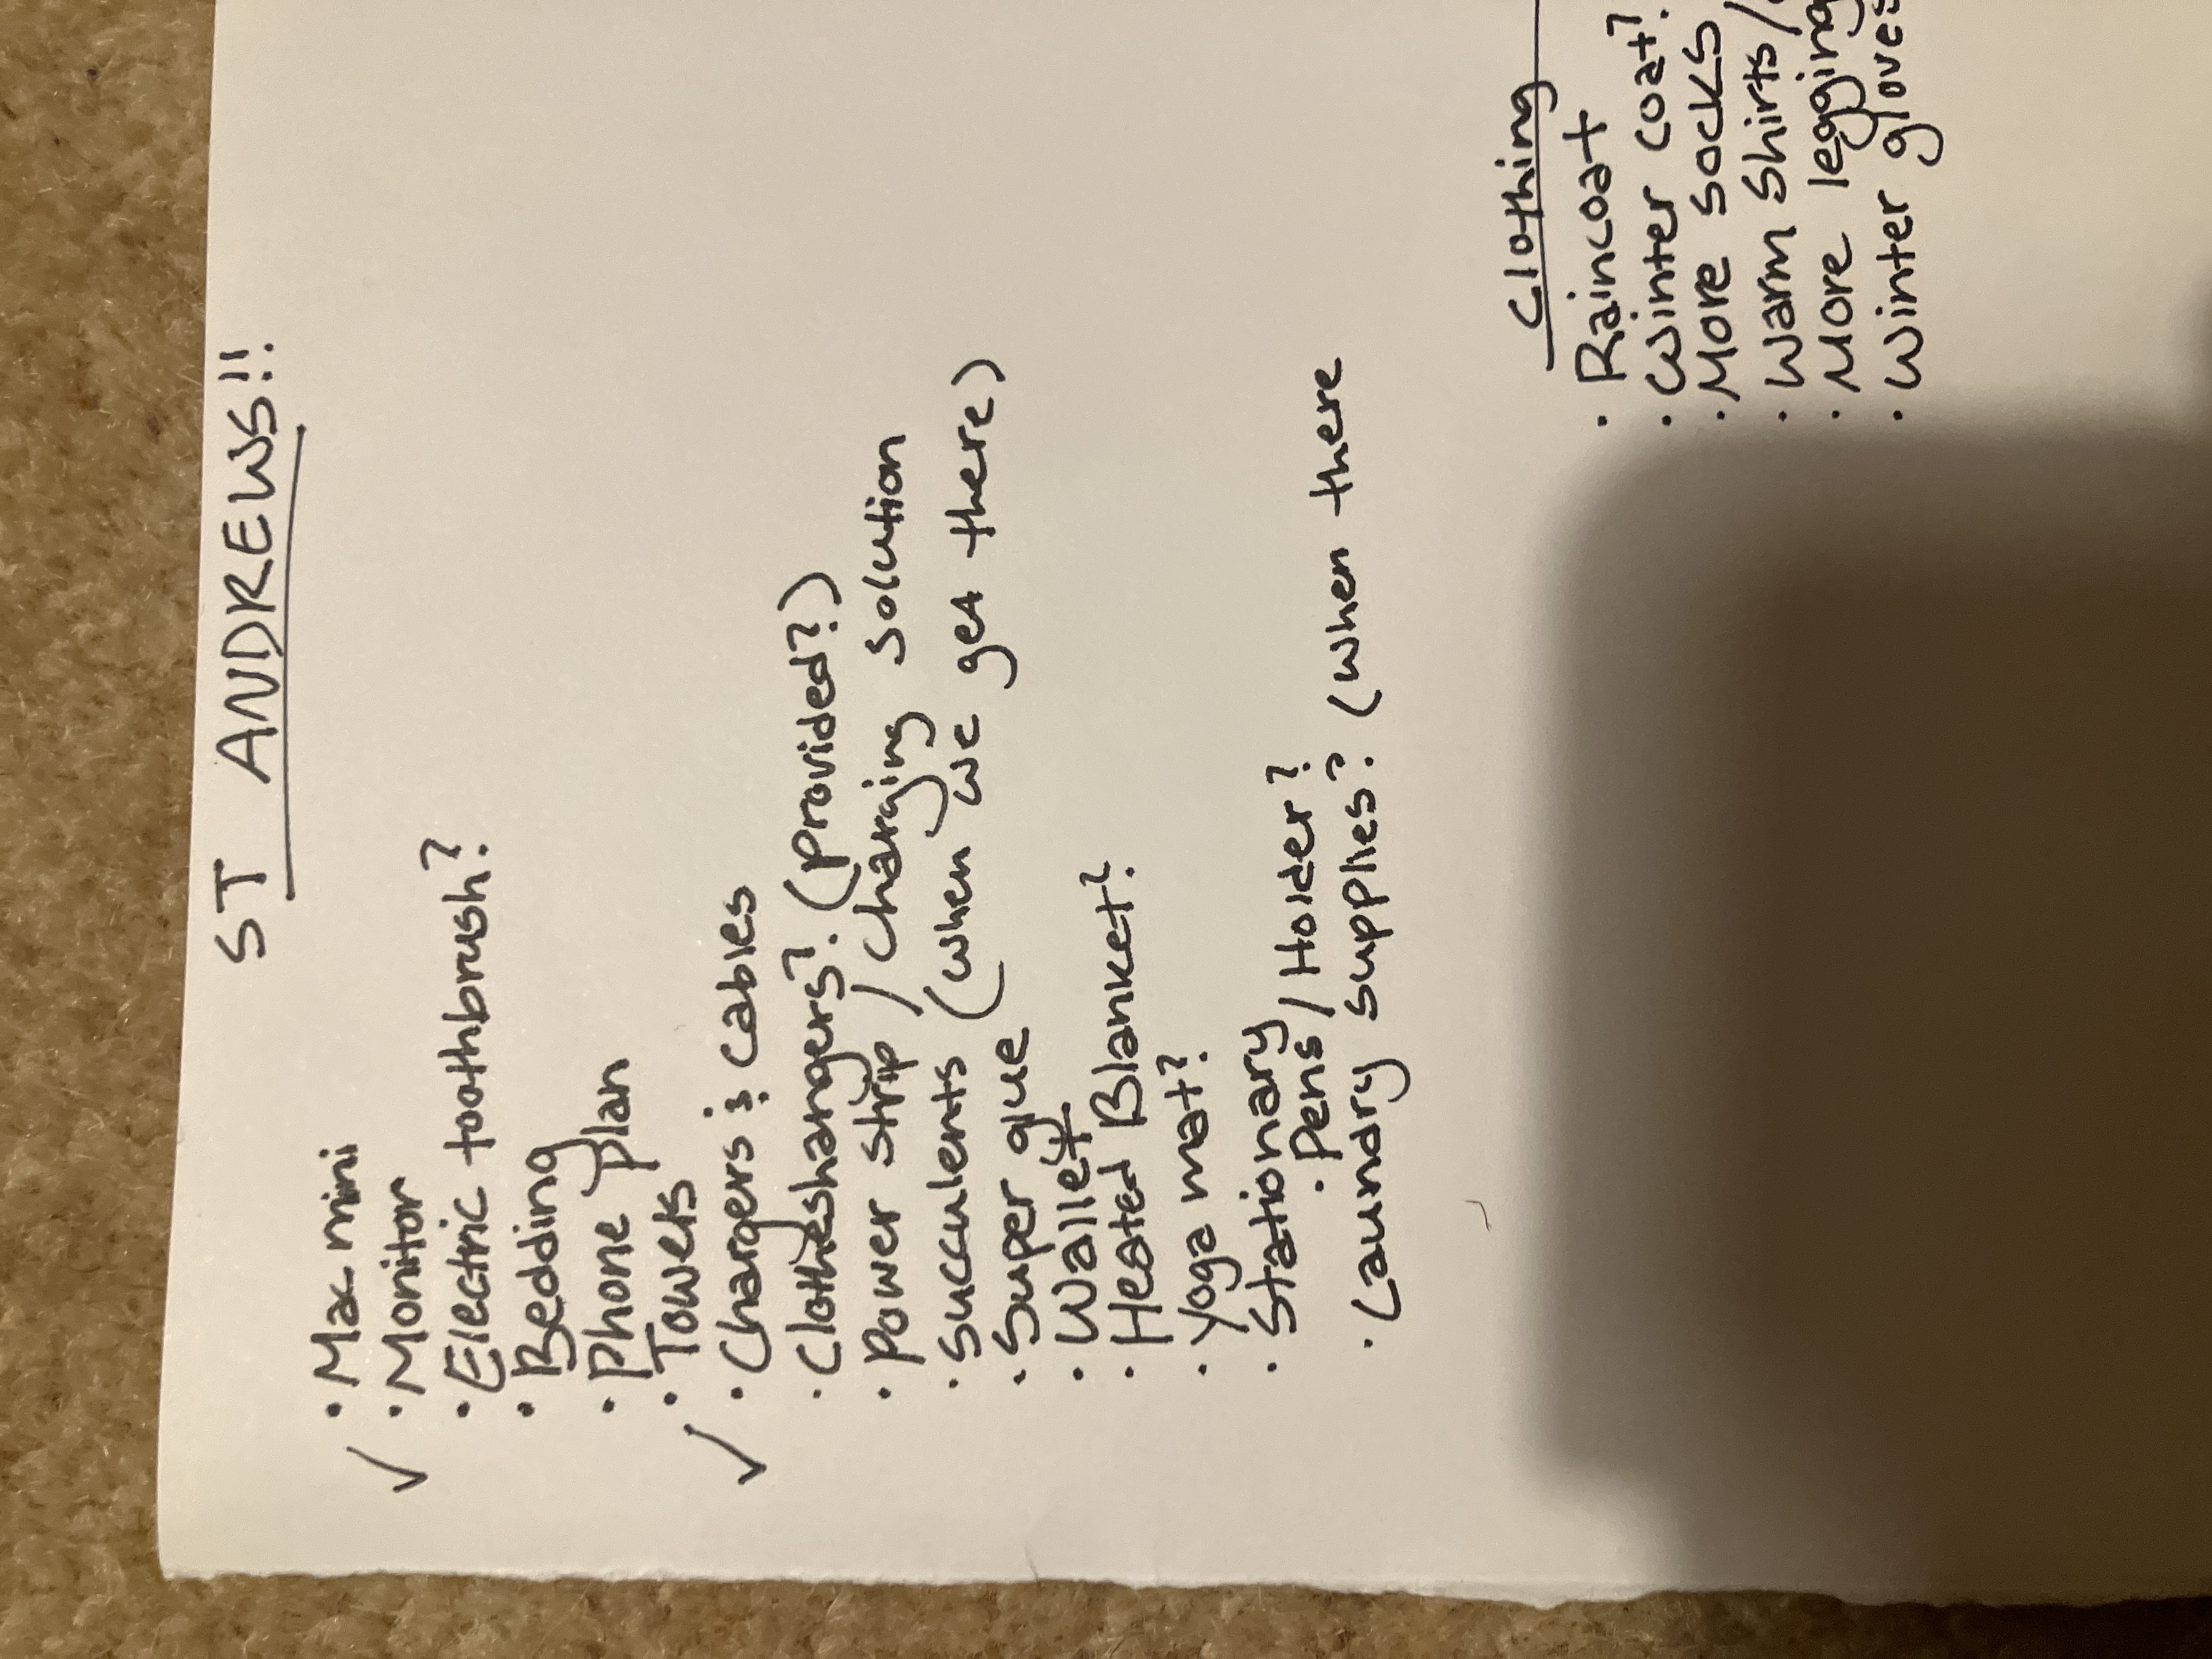 ST ANDREWS!!
· Mac mini
✓ · Monitor
· Electric toothbrush?
· Bedding
· Phone plan
· Towels
✓ · Chargers & cables
· Clotheshangers? (provided?)
· Power strip / charging solution
· Succulents (when we get there)
· Super glue
· Wallet
· Heated Blanket?
· Yoga mat?
· Stationary
· Pens / Holder?
· Laundry supplies? (when there
Clothing
· Raincoat
· Winter coat?
· More socks
· Warm shirts /
· More legging
· Winter gloves